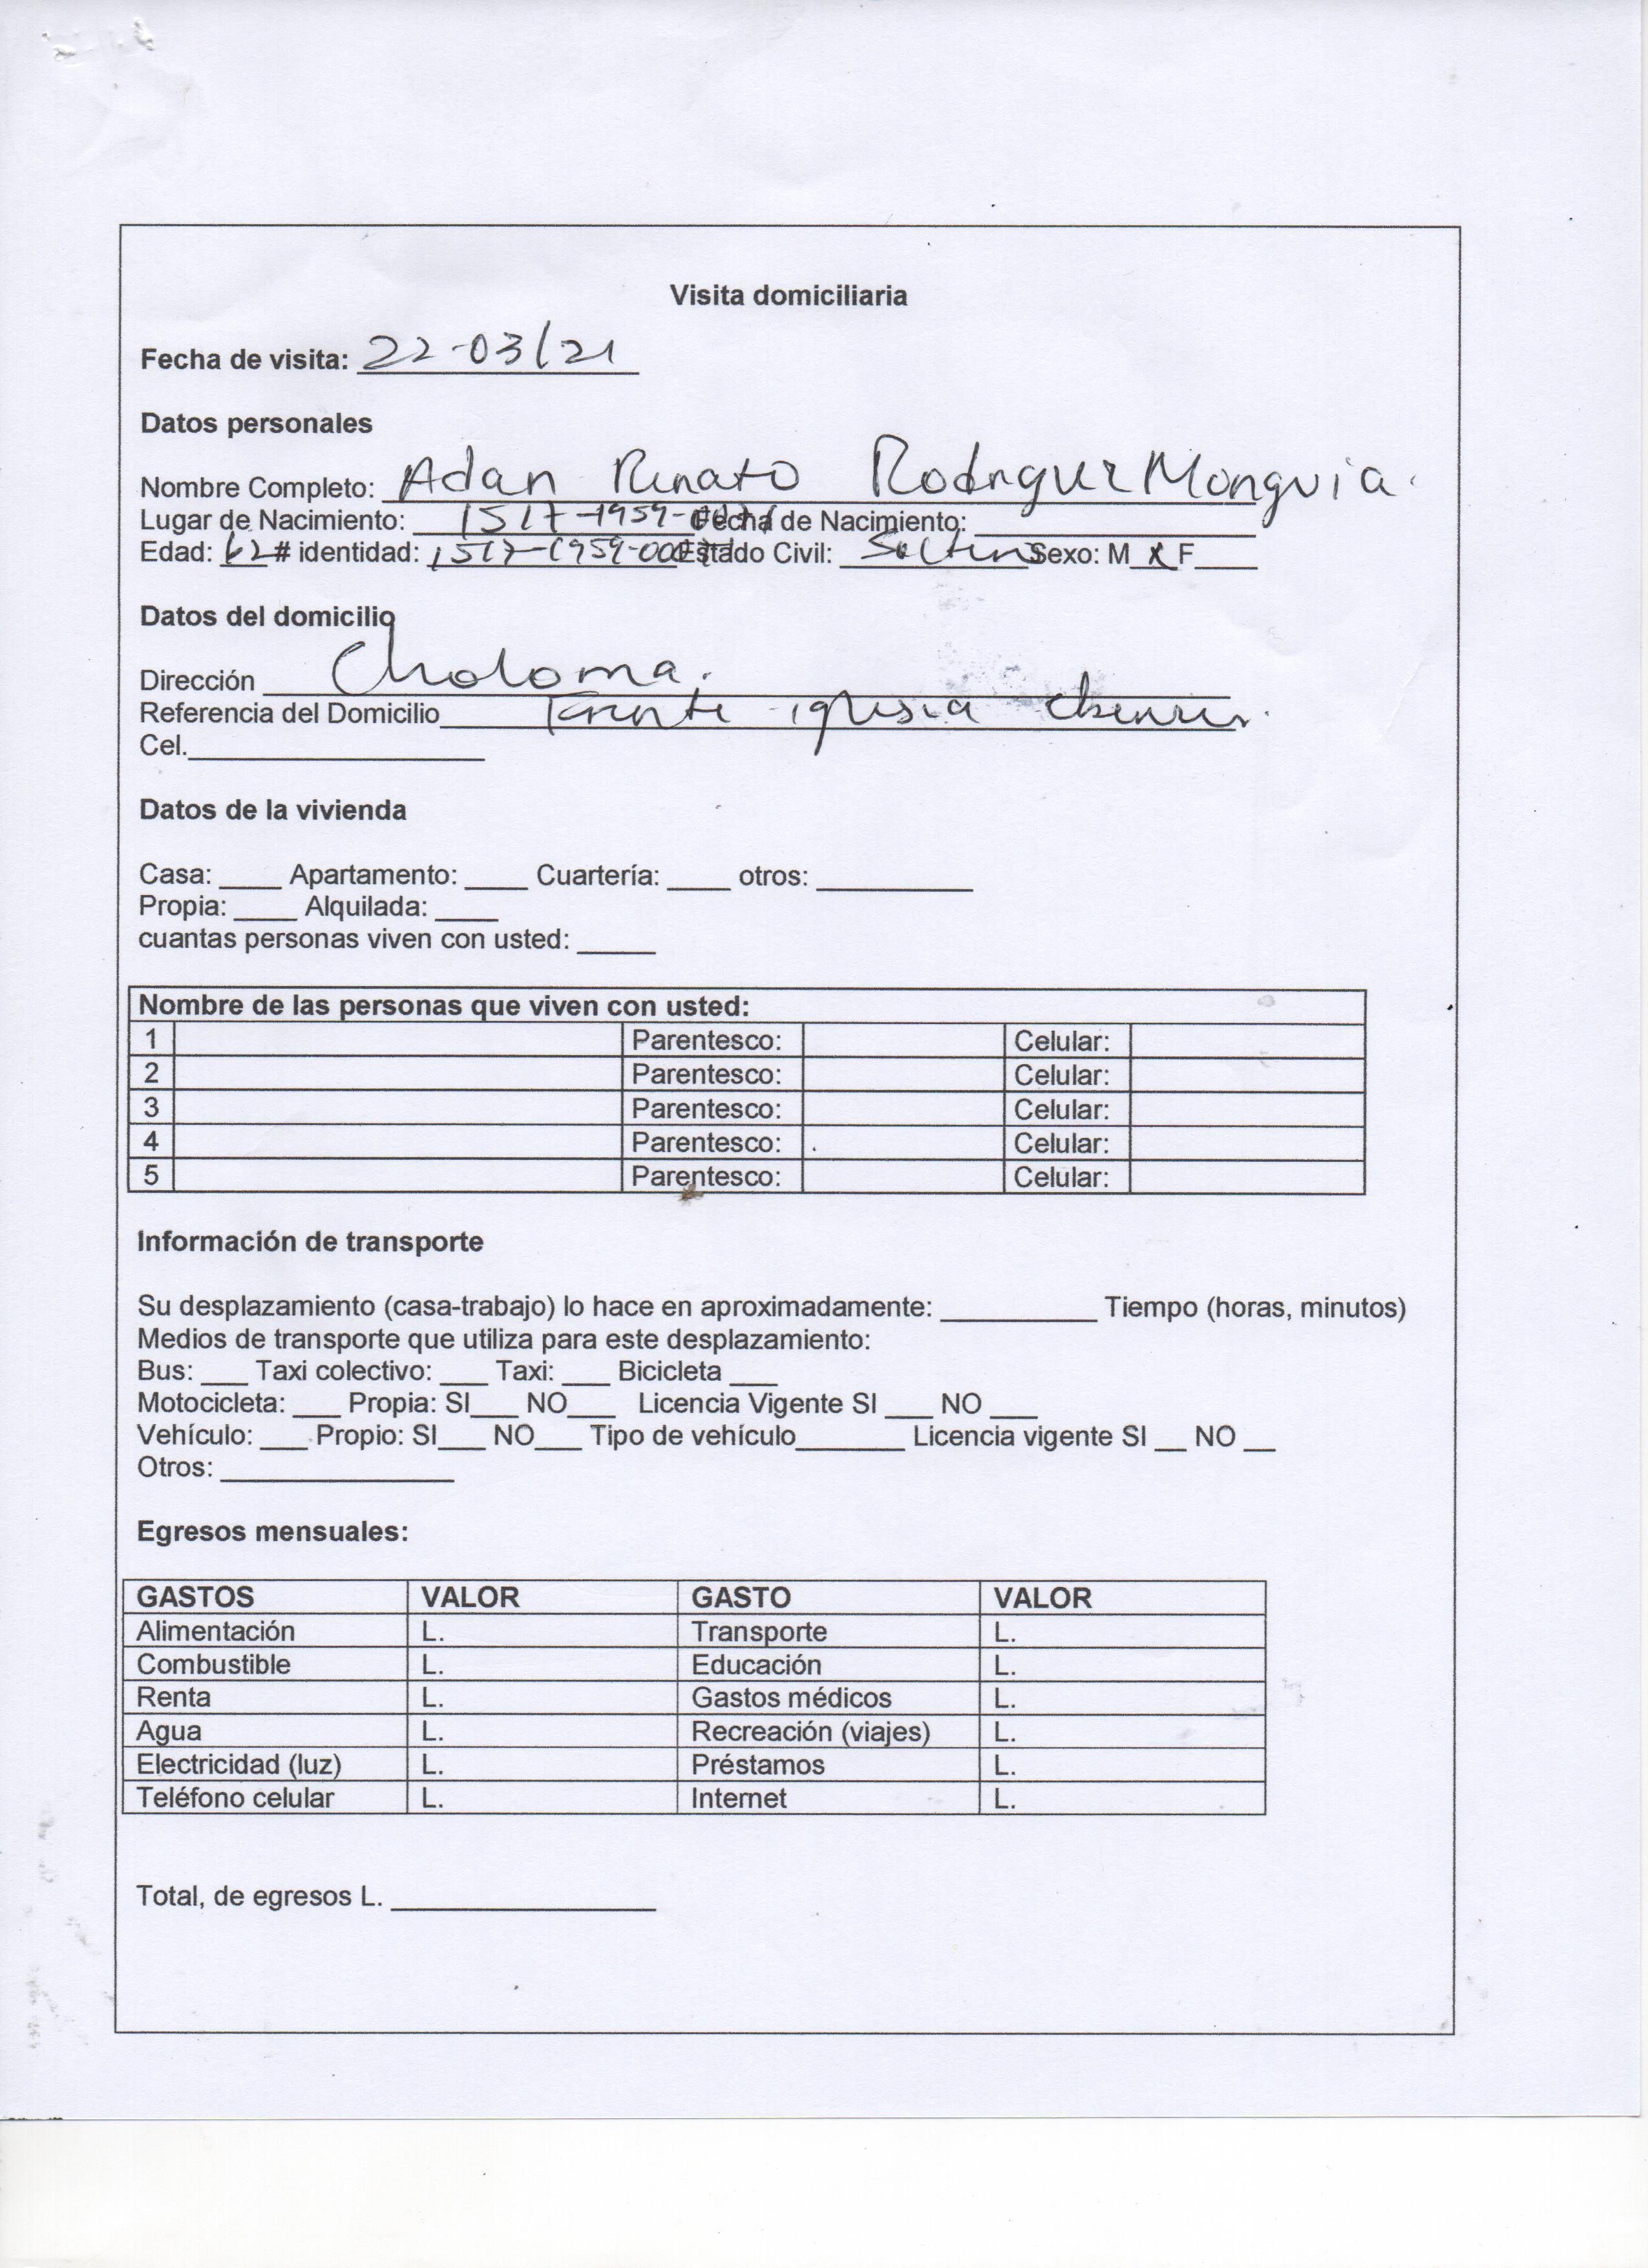 Visita domiciliaria
Fecha de visita: 22-03/21
Datos personales
Nombre Completo: Adan Renato Rodriguez Monguia.
Lugar de Nacimiento: 1517-1959- Fecha de Nacimiento: ____
Edad: 62 # identidad: 1517-1959- Estado Civil: Soltero Sexo: M X F____
Datos del domicilio
Dirección Choloma.
Referencia del Domicilio Frente iglesia
Cel.____
Datos de la vivienda
Casa: ____ Apartamento: ____ Cuartería: ____ otros: ____
Propia: ____ Alquilada: ____
cuantas personas viven con usted: ____
Nombre de las personas que viven con usted:
1 Parentesco: Celular:
2 Parentesco: Celular:
3 Parentesco: Celular:
4 Parentesco: Celular:
5 Parentesco: Celular:
Información de transporte
Su desplazamiento (casa-trabajo) lo hace en aproximadamente: ____ Tiempo (horas, minutos)
Medios de transporte que utiliza para este desplazamiento:
Bus: ___ Taxi colectivo: ___ Taxi: ___ Bicicleta ___
Motocicleta: ___ Propia: SI___ NO___ Licencia Vigente SI ___ NO ___
Vehículo: ___ Propio: SI___ NO___ Tipo de vehículo____ Licencia vigente SI __ NO __
Otros: ____
Egresos mensuales:
GASTOS VALOR GASTO VALOR
Alimentación L. Transporte L.
Combustible L. Educación L.
Renta L. Gastos médicos L.
Agua L. Recreación (viajes) L.
Electricidad (luz) L. Préstamos L.
Teléfono celular L. Internet L.
Total, de egresos L. ____